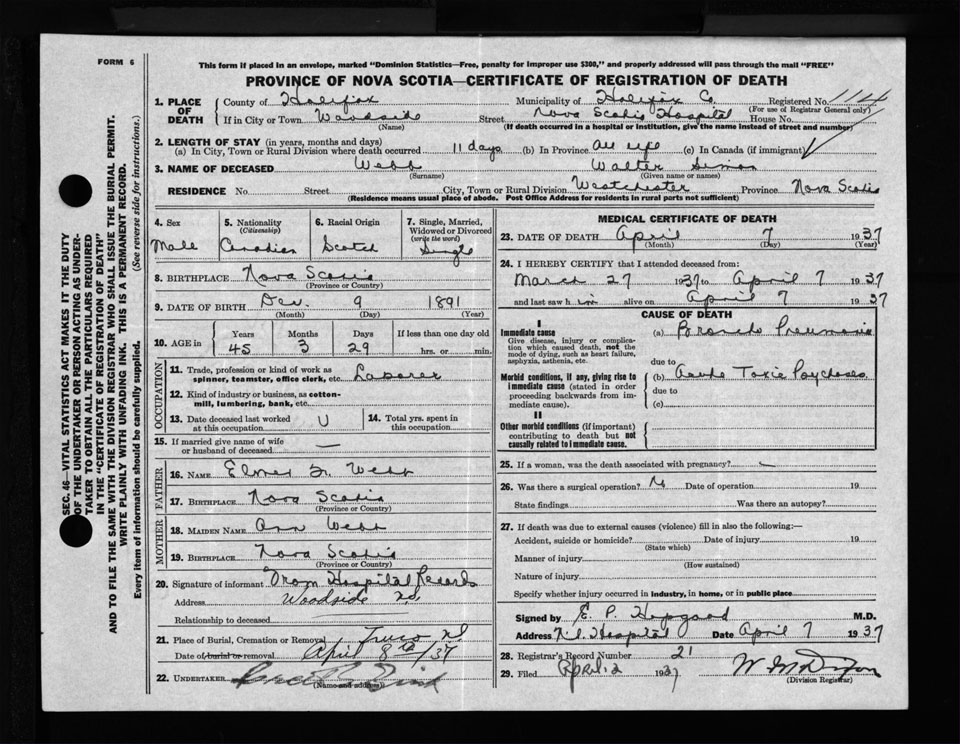 FORM 6
This form if placed in an envelope, marked "Dominion Statistics—Free, penalty for improper use $300," and properly addressed will pass through the mail "FREE"
PROVINCE OF NOVA SCOTIA—CERTIFICATE OF REGISTRATION OF DEATH
1. PLACE OF DEATH County of Halifax Municipality of Halifax Co. Registered No.
(For use of Registrar General only)
If in City or Town Woodside Street Nova Scotia Hospital House No.
(Name) (If death occurred in a hospital or institution, give the name instead of street and number)
2. LENGTH OF STAY (in years, months and days)
(a) In City, Town or Rural Division where death occurred 11 days (b) In Province All life (c) In Canada (if immigrant)
3. NAME OF DECEASED Webb Walter Simon
(Surname) (Given name or names)
RESIDENCE No. Street City, Town or Rural Division Westchester Province Nova Scotia
(Residence means usual place of abode. Post Office Address for residents in rural parts not sufficient)
4. Sex 5. Nationality (Citizenship) 6. Racial Origin 7. Single, Married, Widowed or Divorced (write the word)
Male Canadian Scotch Single
8. BIRTHPLACE Nova Scotia
(Province or Country)
9. DATE OF BIRTH Dec. 9 1891
(Month) (Day) (Year)
10. AGE in Years Months Days If less than one day old
45 3 29 hrs. or min.
OCCUPATION
11. Trade, profession or kind of work as spinner, teamster, office clerk, etc. Laborer
12. Kind of industry or business, as cotton-mill, lumbering, bank, etc.
13. Date deceased last worked at this occupation U 14. Total yrs. spent in this occupation
15. If married give name of wife or husband of deceased —
FATHER
16. NAME Webb
17. BIRTHPLACE Nova Scotia
(Province or Country)
MOTHER
18. MAIDEN NAME Ann Webb
19. BIRTHPLACE Nova Scotia
(Province or Country)
20. Signature of informant From Hospital Records
Address Woodside N.S.
Relationship to deceased
21. Place of Burial, Cremation or Removal Truro N.S.
Date of burial or removal April 8th/37
22. UNDERTAKER
(Name and address)
MEDICAL CERTIFICATE OF DEATH
23. DATE OF DEATH April 7 1937
(Month) (Day) (Year)
24. I HEREBY CERTIFY that I attended deceased from:
March 27 1937 to April 7 1937
and last saw him alive on April 7 1937
CAUSE OF DEATH
I
Immediate cause (a) Broncho Pneumonia
Give disease, injury or complication which caused death, not the mode of dying, such as heart failure, asphyxia, asthenia, etc.
due to
Morbid conditions, if any, giving rise to immediate cause (stated in order proceeding backwards from immediate cause). (b) Acute Toxic Psychoses
due to
(c)
II
Other morbid conditions (if important) contributing to death but not causally related to immediate cause.
25. If a woman, was the death associated with pregnancy? —
26. Was there a surgical operation? No Date of operation 19
State findings Was there an autopsy?
27. If death was due to external causes (violence) fill in also the following:—
Accident, suicide or homicide? Date of injury 19
(State which)
Manner of injury
(How sustained)
Nature of injury
Specify whether injury occurred in industry, in home, or in public place
Signed by E. P. Hopgood M.D.
Address N.S. Hospital Date April 7 1937
28. Registrar's Record Number 21
29. Filed April 12 1937
(Division Registrar)
SEC. 46—VITAL STATISTICS ACT MAKES IT THE DUTY
OF THE UNDERTAKER OR PERSON ACTING AS UNDER-
TAKER TO OBTAIN ALL THE PARTICULARS REQUIRED
IN THE "CERTIFICATE OF REGISTRATION OF DEATH"
AND TO FILE THE SAME WITH THE DIVISION REGISTRAR WHO SHALL ISSUE THE BURIAL PERMIT.
WRITE PLAINLY WITH UNFADING INK. THIS IS A PERMANENT RECORD.
Every item of information should be carefully supplied. (See reverse side for instructions.)